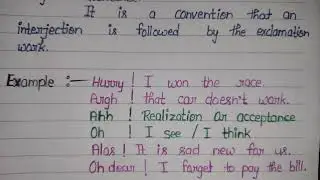 It is a convention that an
interjection is followed by the exclamation
work.
Example :— Hurry ! I won the race.
Argh ! that car doesn't work.
Ahh ! Realization or acceptance
Oh ! I see / I think.
Alas ! It is sad new for us.
Oh dear ! I forget to pay the bill.